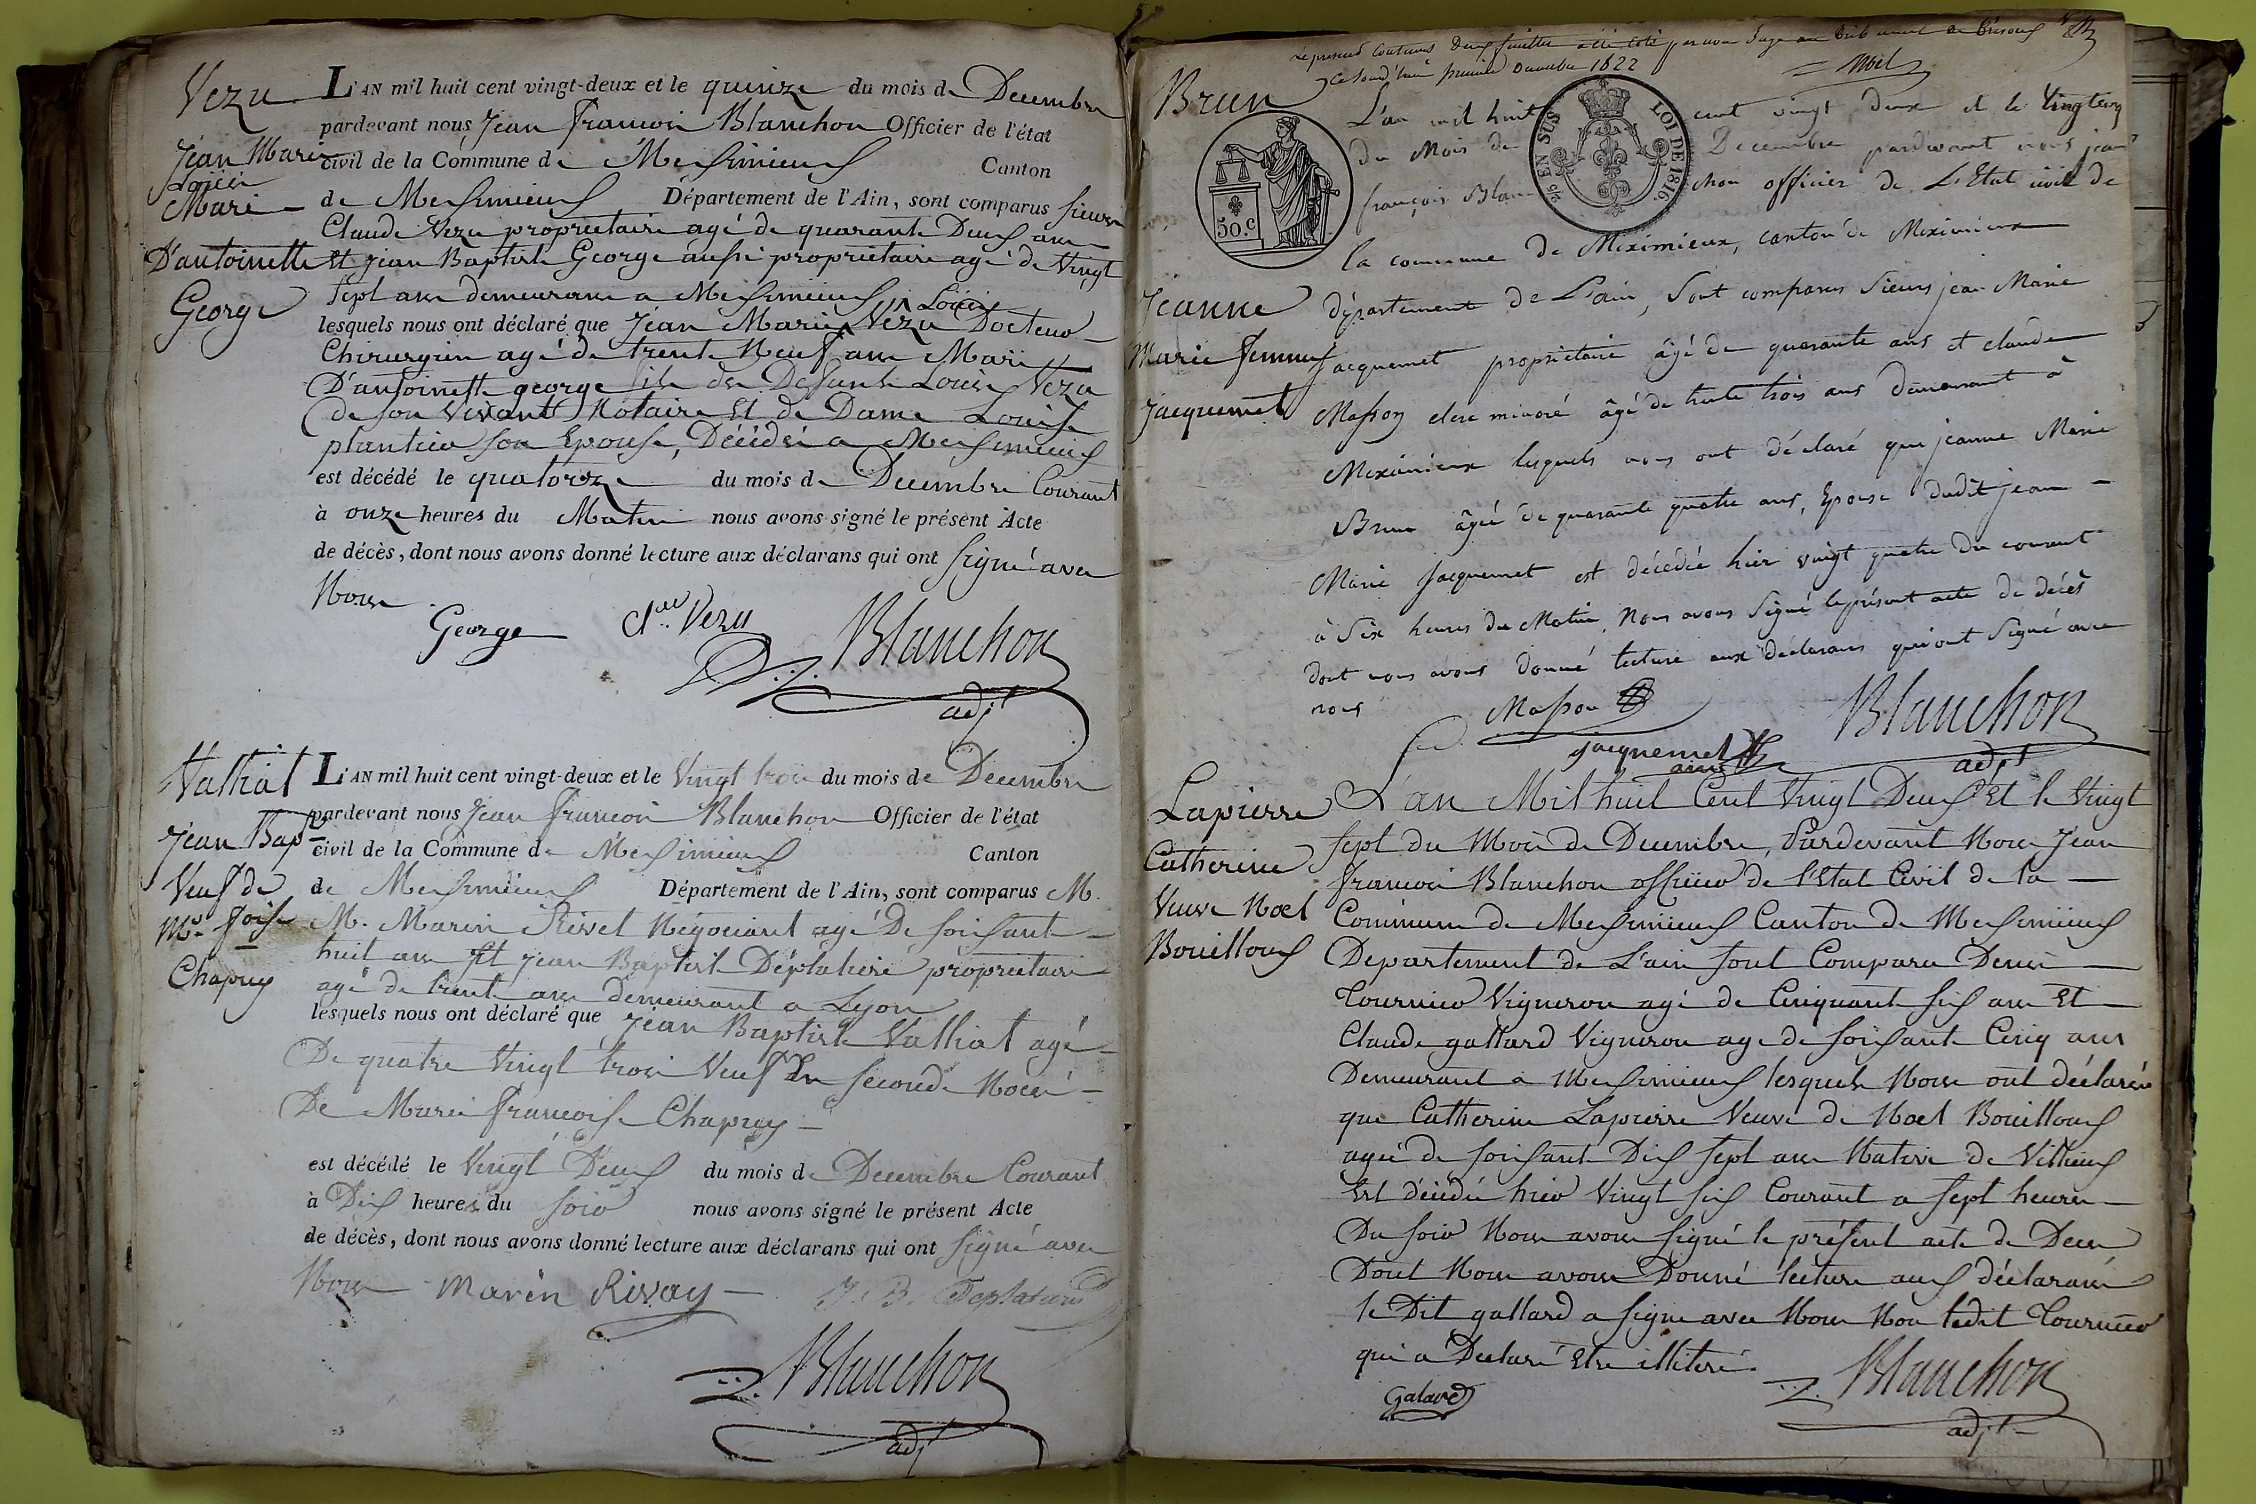 Vezu
Jean Marie
Loüis
Mari
D'antoinette
George
L'AN mil huit cent vingt-deux et le quinze du mois de Decembre
pardevant nous Jean François Blanchon Officier de l'état
civil de la Commune de Meximieux Canton
de Meximieux Département de l'Ain, sont comparus sieurs
Claude Vezu proprietaire agé de quarante Deux ans
Et Jean Baptiste George aussi proprietaire agé de Vingt
Sept ans demeurans a Meximieux
lesquels nous ont déclaré que Jean Marie Loüis Vezu Docteur
Chirurgien agé de trente Neuf ans Mari
D'antoinette george fils de Defunt Loüis Vezu
de son Vivant Notaire Et de Dame Loüise
plantier son Epouse, Décédé a Meximieux
est décédé le quatorze du mois de Decembre Courant
à onze heures du Matin nous avons signé le présent Acte
de décès, dont nous avons donné lecture aux déclarans qui ont signé avec
Nous
George Cl. Vezu Blanchon
adjt
Valhiat
Jean Bap
Veuf de
Me foise
Chapuy
L'AN mil huit cent vingt-deux et le Vingt trois du mois de Decembre
pardevant nous Jean François Blanchon Officier de l'état
civil de la Commune de Meximieux Canton
de Meximieux Département de l'Ain, sont comparus M.
M. Marin Rivet Négociant agé De soixante
huit ans Et jean Baptiste Déplatiere proprietaire
agé de trente ans demeurant a Lyon
lesquels nous ont déclaré que Jean Baptiste Valhiat agé
De quatre Vingt trois Veuf En seconde Noces
De Marie françoise Chapuy
est décédé le Vingt Deux du mois de Decembre Courant
à Dix heures du soir nous avons signé le présent Acte
de décès, dont nous avons donné lecture aux déclarans qui ont signé avec
Nous Marin Rivay J. B. Deplatiere
Blanchon
adjt
Le présent contenant deux feuillets a été coté par nous Juge au tribunal de Trévoux
Ce jourd'hui premier Decembre 1822
Brun
Jeanne
Marie femme
Jacquemet
50.C
2/10 EN SUS LOI DE 1816.
L'an mil huit cent vingt deux et le Vingt cinq
du Mois de Decembre pardevant nous jean
françois Blanchon officier de L'Etat civil de
la commune de Meximieux, canton de Meximieux
département de L'ain, sont comparus sieurs jean Marie
Jacquemet propriétaire âgé de quarante ans et claude
Masson clerc minoré âgé de trente trois ans demeurant à
Meximieux lesquels nous ont déclaré que jeanne Marie
Brun âgée de quarante quatre ans, Epouse dudit jean
Marie Jacquemet est décédée hier vingt quatre du courant
à Six heures du Matin, Nous avons Signé le présent acte de décès
dont nous avons donné lecture aux déclarans qui ont signé avec
nous Masson Blanchon
Jacquemet adjt
Lapierre
Catherine
Veuve Noel
Bouilloux
L'an Mil huit Cent Vingt Deux Et le Vingt
sept du Mois de Decembre, Pardevant Nous Jean
François Blanchon officier de l'Etat Civil de la
Commune de Meximieux Canton de Meximieux
Departement de L'ain sont Comparu Denis
Tournier Vigneron agé de Cinquante six ans Et
Claude gallard Vigneron age de soixante Cinq ans
Demeurant a Meximieux lesquels Nous ont déclarée
que Catherine Lapierre Veuve de Noel Bouilloux
agée de soixante Dix sept ans Native de Villieux
Est décédée hier Vingt six Courant a sept heures
Du soir Nous avons signé le présent acte de Deces
Dont Nous avons Donné lecture aux déclarans
le Dit gallard a signe avec Nous Non ledit Tournier
qui a Declaré Etre illiteré.
Galard Blanchon
adjt